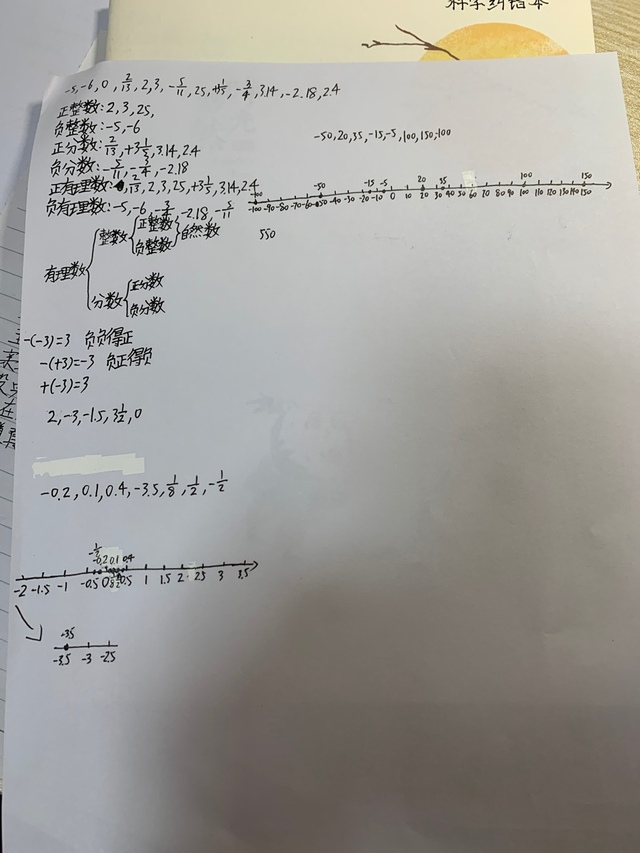 科学纠错本
-5,-6,0,2/13,2,3,-5/11,25,+3 1/5,-3/4,3.14,-2.18,2.4
正整数:2,3,25,
负整数:-5,-6
正分数:2/13,+3 1/5,3.14,2.4
负分数:-5/11,-3/4,-2.18
正有理数:2/13,2,3,25,+3 1/5,3.14,2.4
负有理数:-5,-6,-3/4,-2.18,-5/11
有理数
整数
正整数
负整数
自然数
分数
正分数
负分数
-(-3)=3 负负得正
-(+3)=-3 负正得负
+(-3)=3
2,-3,-1.5,3 1/2,0
-0.2,0.1,0.4,-3.5,1/8,1/2,-1/2
-1/2
-0.2 0.1 0.4
-2 -1.5 -1 -0.5 0 0.5 1 1.5 2 2.5 3 3.5
-3.5
-3.5 -3 -2.5
-50,20,35,-15,-5,100,150,-100
-100 -50 -15 -5 20 35 100 150
-100 -90 -80 -70 -60 -50 -40 -30 -20 -10 0 10 20 30 40 50 60 70 80 90 100 110 120 130 140 150
550